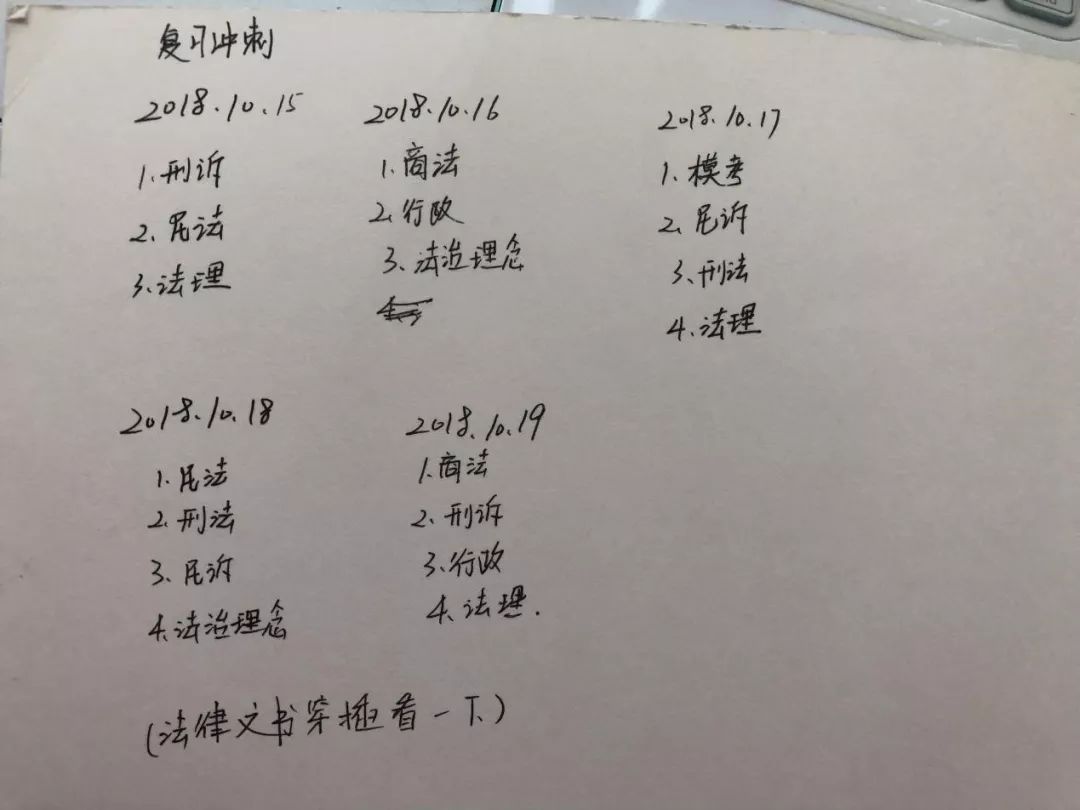 复习冲刺
2018.10.15
1.刑诉
2.民法
3.法理
2018.10.16
1.商法
2.行政
3.法治理念
2018.10.17
1.模考
2.民诉
3.刑法
4.法理
2018.10.18
1.民法
2.刑法
3.民诉
4.法治理念
2018.10.19
1.商法
2.刑诉
3.行政
4.法理.
(法律文书穿插看一下.)